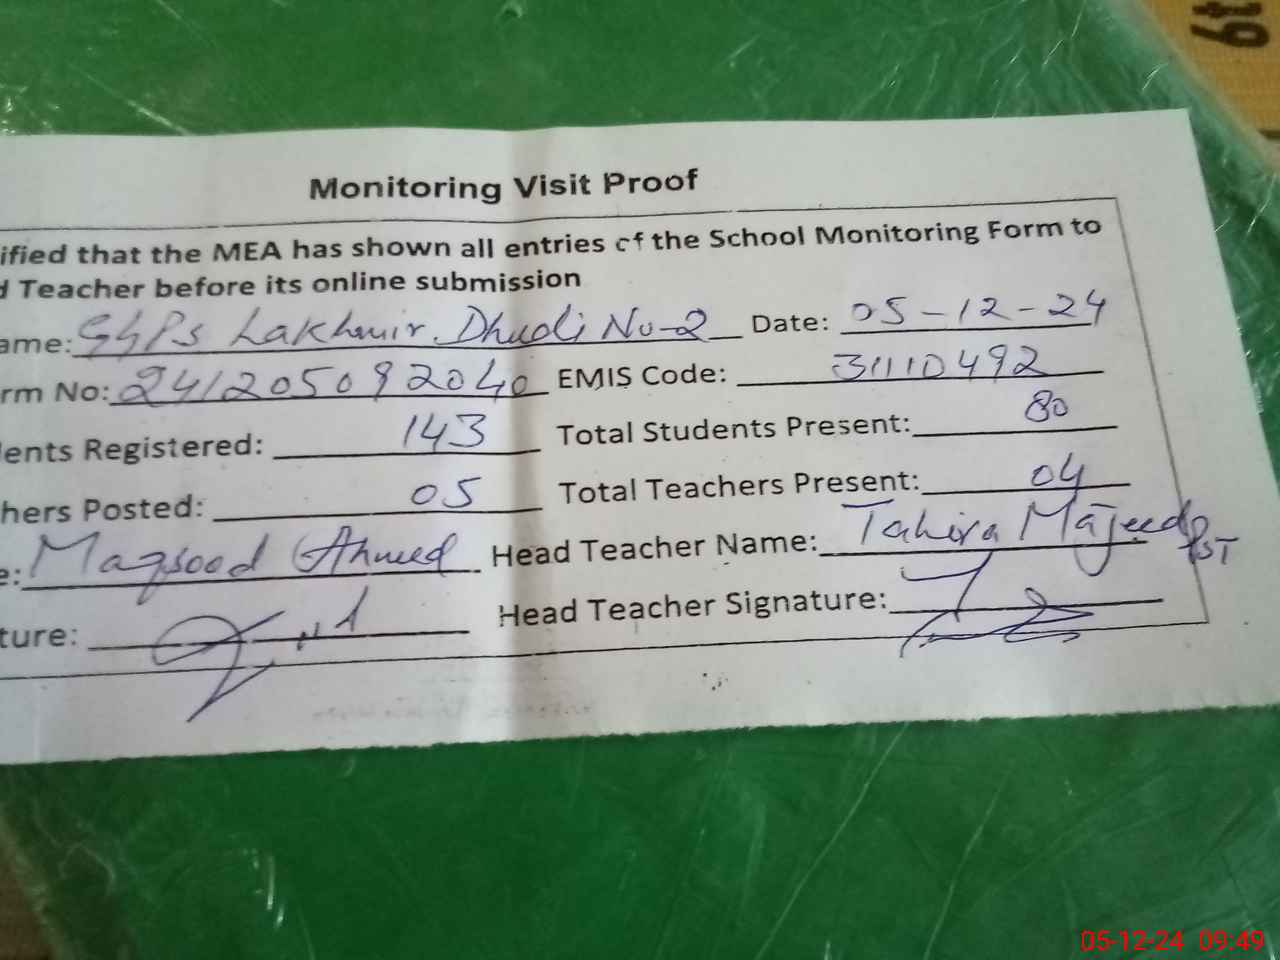 Monitoring Visit Proof
ified that the MEA has shown all entries of the School Monitoring Form to
d Teacher before its online submission
ame: GGPS Lakhmir Dhudi No-2 Date: 05-12-24
rm No: 241205092040 EMIS Code: 31110492
lents Registered: 143 Total Students Present: 80
hers Posted: 05 Total Teachers Present: 04
e: Maqsood Ahmed Head Teacher Name: Tahira Majeed PST
ture: Head Teacher Signature:
05-12-24 09:49